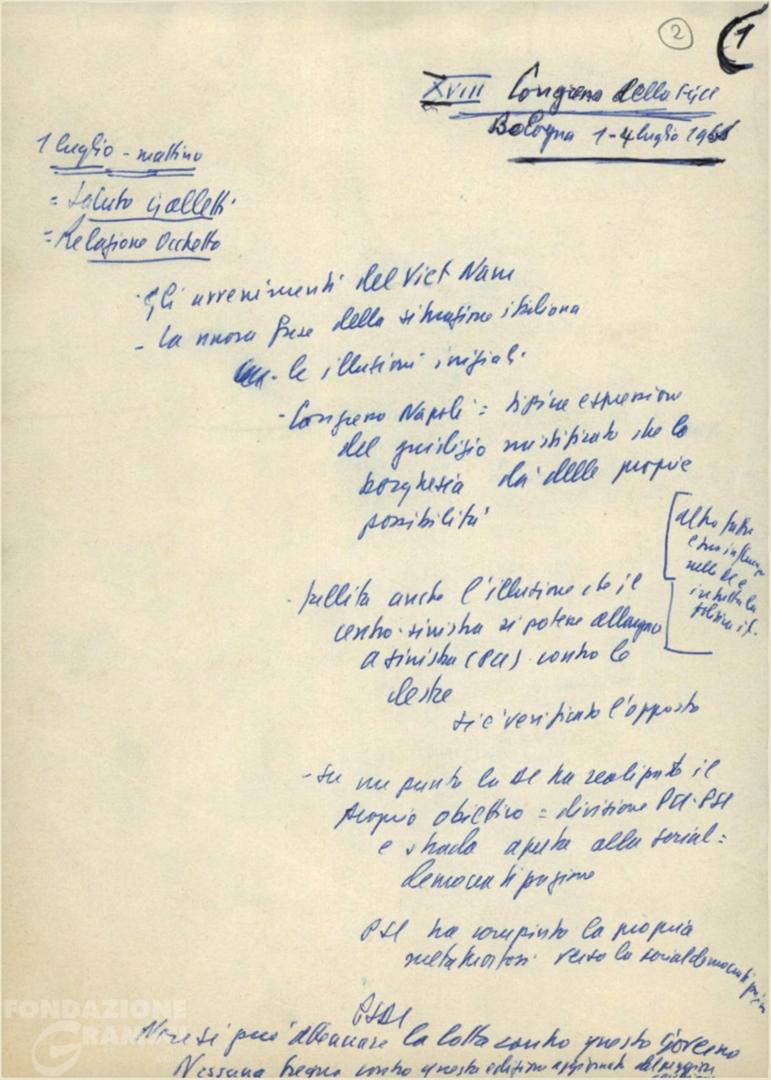 2
1
XVIII Congresso della FGCI
Bologna 1-4 luglio 1965
1 luglio - mattino
= Saluto Galletti
= Relazione Occhetto
- Gli avvenimenti del Viet Nam
- La nuova fase della situazione italiana
- le illusioni iniziali
- Congresso Napoli = tipica espressione
del giudizio mistificato che la
borghesia dà delle proprie
possibilità
altro fatto
è sua influenza
nella DC e
in tutta la
politica it.
- fallita anche l'illusione che il
centro-sinistra si potesse allargare
a sinistra (PCI) contro le
destre
si è verificato l'opposto
- Su un punto la DC ha realizzato il
proprio obiettivo = divisione PCI-PSI
e strada aperta alla social=
democratizzazione
PSI ha compiuto la propria
metamorfosi verso la socialdemocratizzazione
PSDI
Non si può abbassare la lotta contro questo Governo
Nessuna tregua contro questa edizione aggiornata del
FONDAZIONE
GRAMSCI